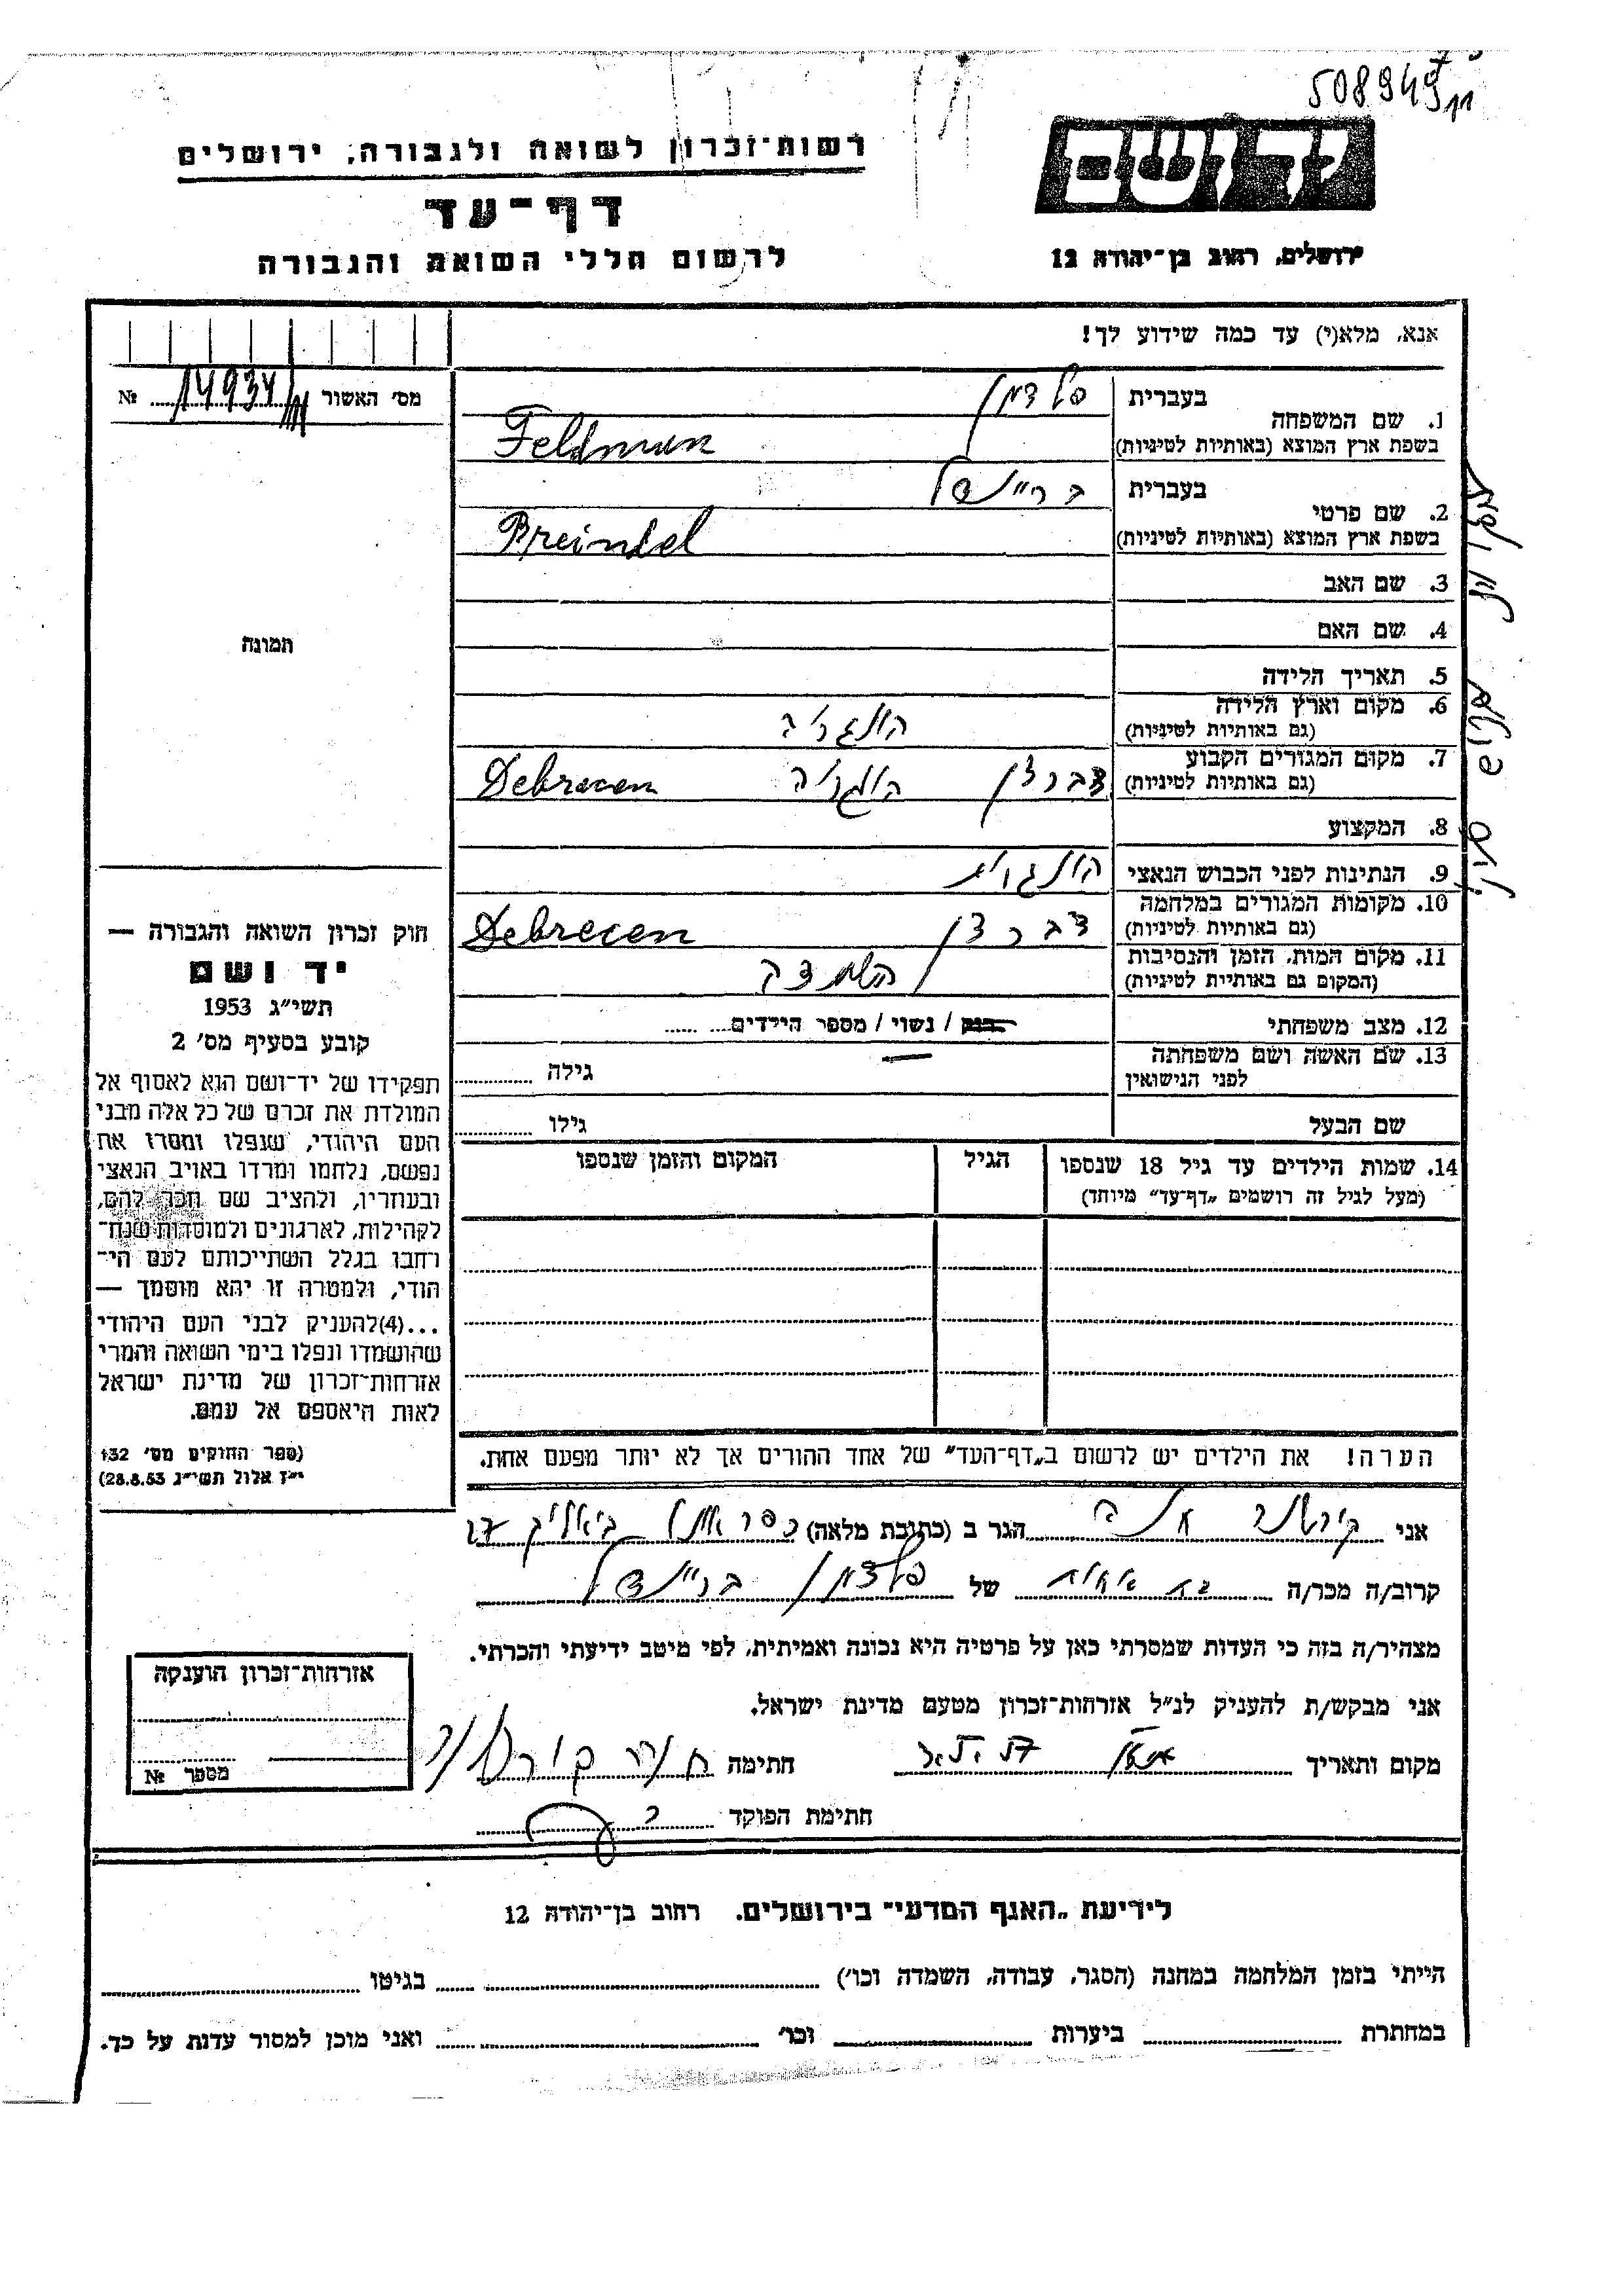 508949
רשות־זכרון לשואה ולגבורה, ירושלים
יד ושם
דף־עד
לרשום חללי השואה והגבורה
ירושלים, רחוב בן־יהודה 12
אנא, מלא(י) עד כמה שידוע לך!
מס׳ האשור 14934 №
1. שם המשפחה
בעברית פלדמן
בשפת ארץ המוצא (באותיות לטיניות) Feldman
2. שם פרטי
בעברית בריינדל
בשפת ארץ המוצא (באותיות לטיניות) Breindel
3. שם האב
4. שם האם
תמונה
5. תאריך הלידה
6. מקום וארץ הלידה
(גם באותיות לטיניות) הונגריה
7. מקום המגורים הקבוע
(גם באותיות לטיניות) דברצן הונגריה Debrecen
8. המקצוע
9. הנתינות לפני הכבוש הנאצי הונגרית
10. מקומות המגורים במלחמה
(גם באותיות לטיניות) דברצן Debrecen
11. מקום המות, הזמן והנסיבות
(המקום גם באותיות לטיניות) השמדה
12. מצב משפחתי רווק / נשוי / מספר הילדים
13. שם האשה ושם משפחתה
לפני הנישואין גילה
שם הבעל גילו
14. שמות הילדים עד גיל 18 שנספו הגיל המקום והזמן שנספו
(מעל לגיל זה רושמים „דף־עד״ מיוחד)
הערה! את הילדים יש לרשום ב„דף־העד״ של אחד ההורים אך לא יותר מפעם אחת.
חוק זכרון השואה והגבורה —
יד ושם
תשי״ג 1953
קובע בסעיף מס׳ 2
תפקידו של יד־ושם הוא לאסוף אל
המולדת את זכרם של כל אלה מבני
העם היהודי, שנפלו ומסרו את
נפשם, נלחמו ומרדו באויב הנאצי
ובעוזריו, ולהציב שם וזכר להם,
לקהילות, לארגונים ולמוסדות שנח־
רבו בגלל השתייכותם לעם הי־
הודי, ולמטרה זו יהא מוסמך —
...(4)להעניק לבני העם היהודי
שהושמדו ונפלו בימי השואה והמרי
אזרחות־זכרון של מדינת ישראל
לאות היאספם אל עמם.
(ספר החוקים מס׳ 132
י״ז אלול תשי״ג 28.8.53)
אני הגר ב (כתובת מלאה) ביאליק
קרוב/ה מכר/ה של פלדמן בריינדל
מצהיר/ה בזה כי העדות שמסרתי כאן על פרטיה היא נכונה ואמיתית, לפי מיטב ידיעתי והכרתי.
אני מבקש/ת להעניק לנ״ל אזרחות־זכרון מטעם מדינת ישראל.
מקום ותאריך חתימה
חתימת הפוקד
אזרחות־זכרון הוענקה
מספר №
לידיעת „האגף המדעי״ בירושלים. רחוב בן־יהודה 12
הייתי בזמן המלחמה במחנה (הסגר, עבודה, השמדה וכו׳) בגיטו
במחתרת ביערות וכו׳ ואני מוכן למסור עדות על כך.